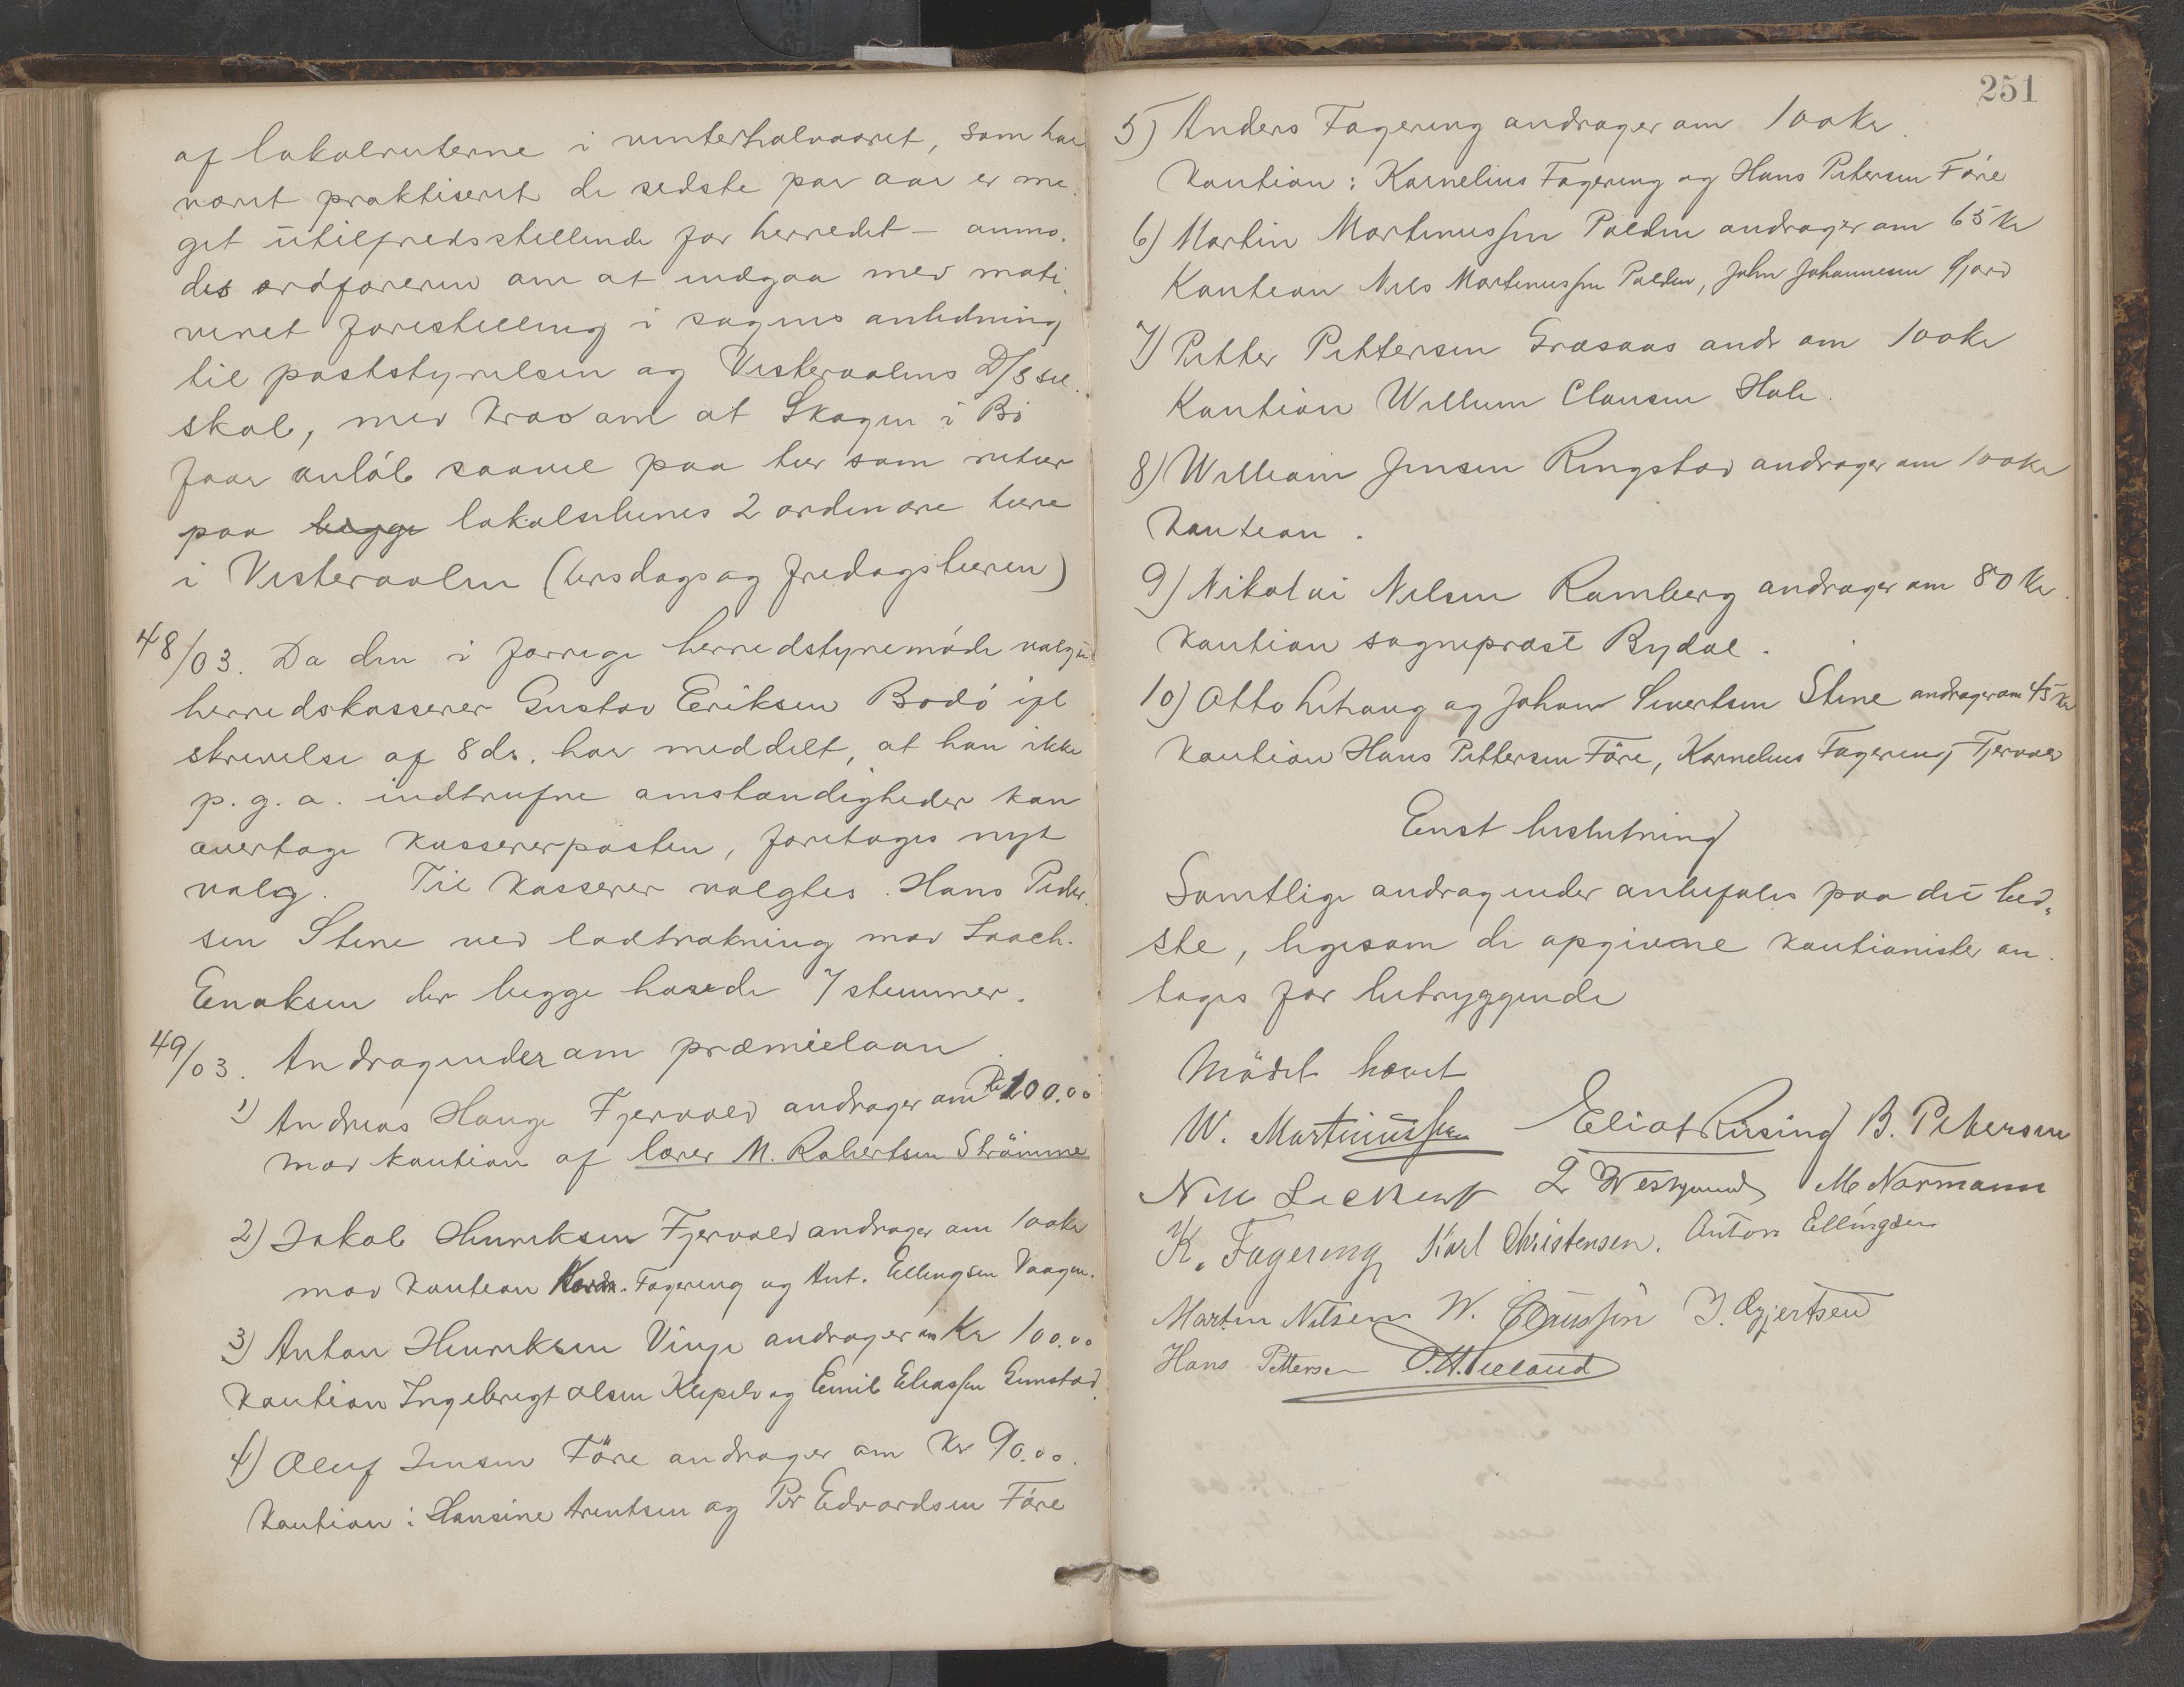 af lokalruterne i vinterhalvaaret, som har
været praktiseret de sidste par aar er me-
get utilfredsstillende for herredet – anmo-
des ordføreren om at indgaa med moti-
veret forestilling i sagens anledning
til poststyrelsen og Vesteraalens D/S sel-
skab, med krav om at Skagen i Bø
faar anløb saavel paa tur som retur
paa begge lokalskibenes 2 ordinære ture
i Vesteraalen (tirsdags og fredagsturen)
48/03. Da den i forrige herredstyremøde valgte
herredskasserer Gustav Eriksen Bodø ifl
skrivelse af 8 ds. har meddelt, at han ikke
p. g. a. indtrufne omstændigheder kan
overtage kassererposten, foretages nyt
valg. Til kasserer valgtes Hans Peder-
sen Stene ved lodtrækning mod Zach.
Enoksen der begge havde 7 stemmer.
49/03. Andragender om præmielaan.
1) Andreas Hauge Fjærvold andrager om Kr 100.00
mod kaution af lærer M. Robertsen Strømme
2) Jakob Henriksen Fjærvold andrager om 100 kr
mod kaution Korn. Fagereng og Ant. Ellingsen Vaagen.
3) Anton Henriksen Vinje andrager om Kr 100.00
Kaution Ingebrigt Olsen Klepelv og Emil Eliassen Eunstad
4) Oluf Jensen Føre andrager om Kr 90.00.
Kaution: Hansine Arentsen og Per Edvardsen Føre
251
5) Anders Fagereng andrager om 100 kr.
Kaution: Kornelius Fagereng og Hans Petersen Føre
6) Martin Martinussen Polden andrager om 65 Kr
Kaution Nils Martinussen Polden, John Johannesen Gjærd
7) Petter Pettersen Græsaas andr om 100 kr
Kaution Willum Clausen Hole.
8) William Jensen Ringstad andrager om 100 kr
Kaution.
9) Nikolai Nilsen Ramberg andrager om 80 Kr.
Kaution sogneprest Rydal.
10) Otto Lihaug og Johan Sivertsen Stene andrager om 45 kr
Kaution Hans Pettersen Føre, Kornelius Fagereng Fjærvold
Enst beslutning
Samtlige andragender anbefales paa det bed-
ste, ligesom de opgivne kautionister an-
tages for betryggende
Mødet hævet
W. Martinussen Eliot Rusing B. Petersen
M. Normann
K. Fagereng Karl Christensen. Anton Ellingsen
Martin Nilsen W. Claussen J. Gjertsen
Hans Pettersen